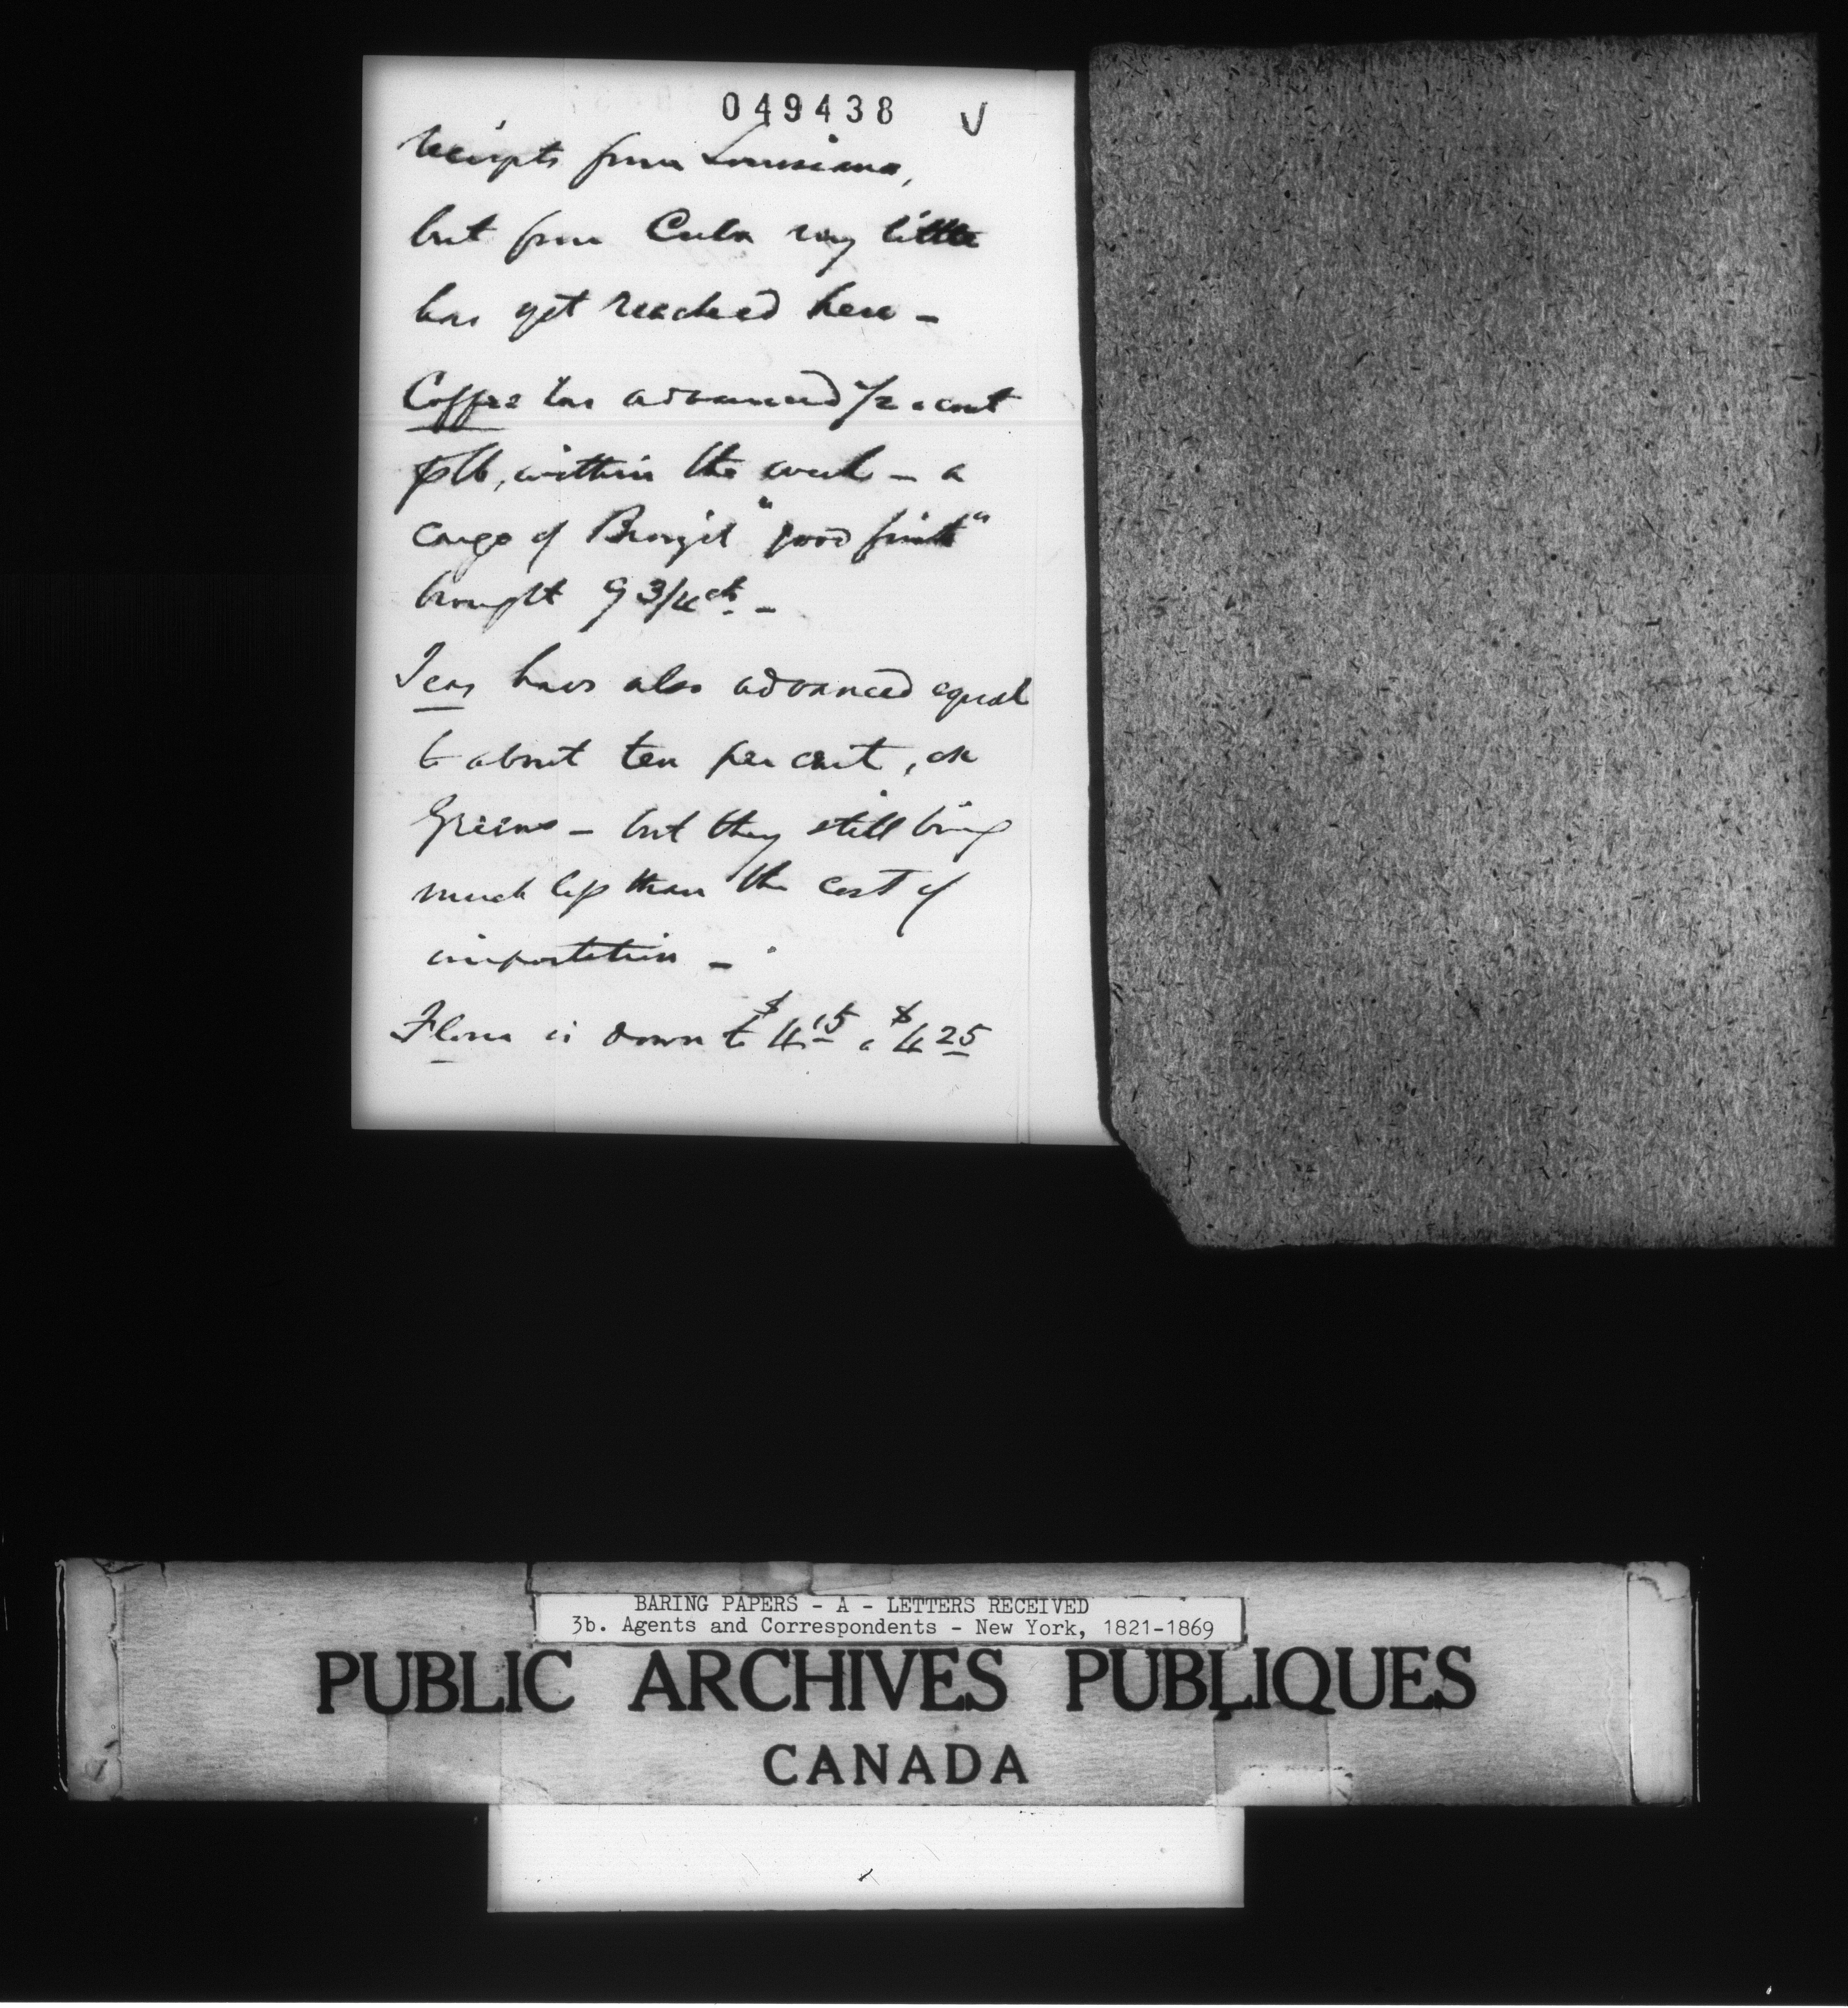 049438
receipts from Louisiana,
but from Cuba very little
has yet reached here –
Coffee has advanced 1/2 a cent
℔ lb, within the week – a
cargo of Brazil "good first"
brought 9 3/4 cts. –
Teas have also advanced equal
to about ten per cent, on
Greens – but they still bring
much less than the cost of
importation –
Flour is down to $4.15 a $4.25
BARING PAPERS - A - LETTERS RECEIVED
3b. Agents and Correspondents - New York, 1821-1869
PUBLIC ARCHIVES PUBLIQUES
CANADA